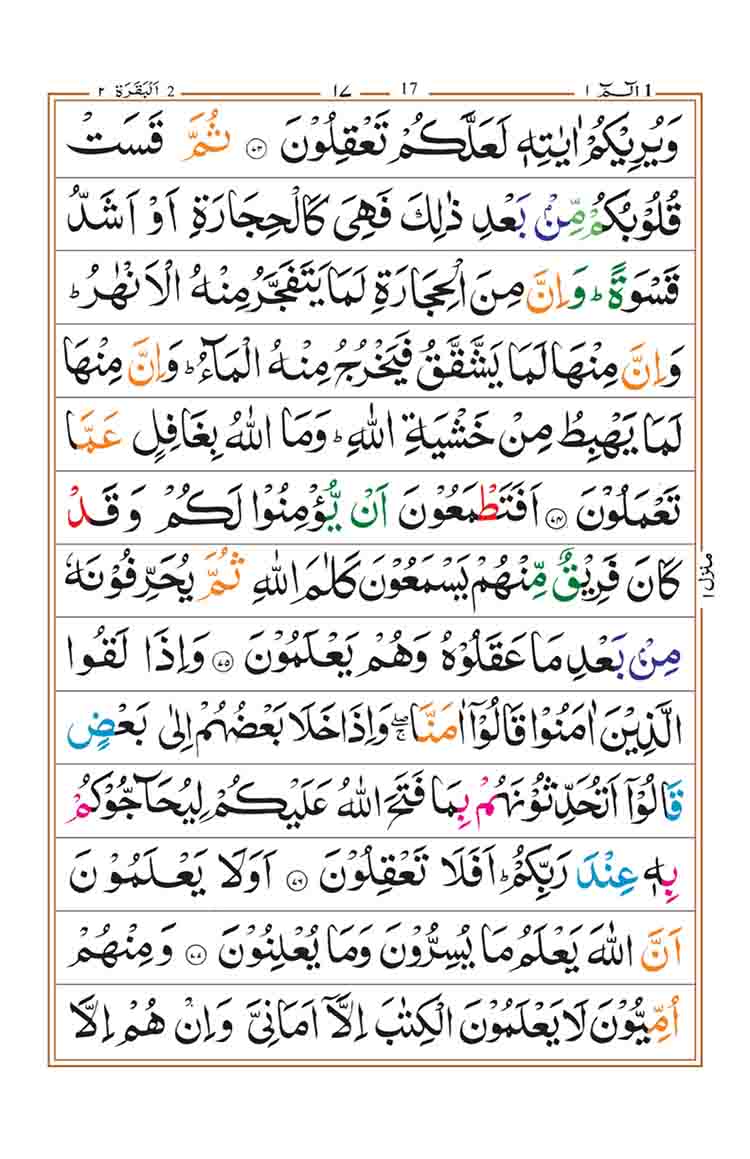 1 الٓـمّٓ ١ 17 ١٧ 2 اَلْبَقَرَة ٢
وَيُرِيْكُمْ اٰيٰتِهٖ لَعَلَّكُمْ تَعْقِلُوْنَ ۝٧٣ ثُمَّ قَسَتْ
قُلُوْبُكُمْ مِّنْۢ بَعْدِ ذٰلِكَ فَهِيَ كَالْحِجَارَةِ اَوْ اَشَدُّ
قَسْوَةً ؕ وَاِنَّ مِنَ الْحِجَارَةِ لَمَا يَتَفَجَّرُ مِنْهُ الْاَنْهٰرُ ؕ
وَاِنَّ مِنْهَا لَمَا يَشَّقَّقُ فَيَخْرُجُ مِنْهُ الْمَآءُ ؕ وَاِنَّ مِنْهَا
لَمَا يَهْبِطُ مِنْ خَشْيَةِ اللّٰهِ ؕ وَمَا اللّٰهُ بِغَافِلٍ عَمَّا
تَعْمَلُوْنَ ۝٧٤ اَفَتَطْمَعُوْنَ اَنْ يُّؤْمِنُوْا لَكُمْ وَقَدْ
كَانَ فَرِيْقٌ مِّنْهُمْ يَسْمَعُوْنَ كَلٰمَ اللّٰهِ ثُمَّ يُحَرِّفُوْنَهٗ
مِنْۢ بَعْدِ مَا عَقَلُوْهُ وَهُمْ يَعْلَمُوْنَ ۝٧٥ وَاِذَا لَقُوا
الَّذِيْنَ اٰمَنُوْا قَالُوْٓا اٰمَنَّا ۖۚ وَاِذَا خَلَا بَعْضُهُمْ اِلٰى بَعْضٍ
قَالُوْٓا اَتُحَدِّثُوْنَهُمْ بِمَا فَتَحَ اللّٰهُ عَلَيْكُمْ لِيُحَآجُّوْكُمْ
بِهٖ عِنْدَ رَبِّكُمْ ؕ اَفَلَا تَعْقِلُوْنَ ۝٧٦ اَوَلَا يَعْلَمُوْنَ
اَنَّ اللّٰهَ يَعْلَمُ مَا يُسِرُّوْنَ وَمَا يُعْلِنُوْنَ ۝٧٧ وَمِنْهُمْ
اُمِّيُّوْنَ لَا يَعْلَمُوْنَ الْكِتٰبَ اِلَّآ اَمَانِيَّ وَاِنْ هُمْ اِلَّا
منزل ١